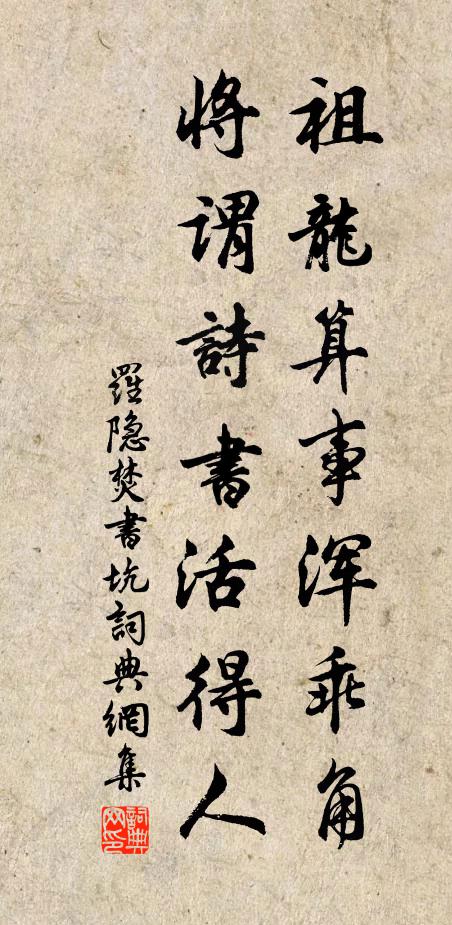 祖龍算事渾乖角
將謂詩書活得人
羅隐焚書坑詞典網集
詞典網印